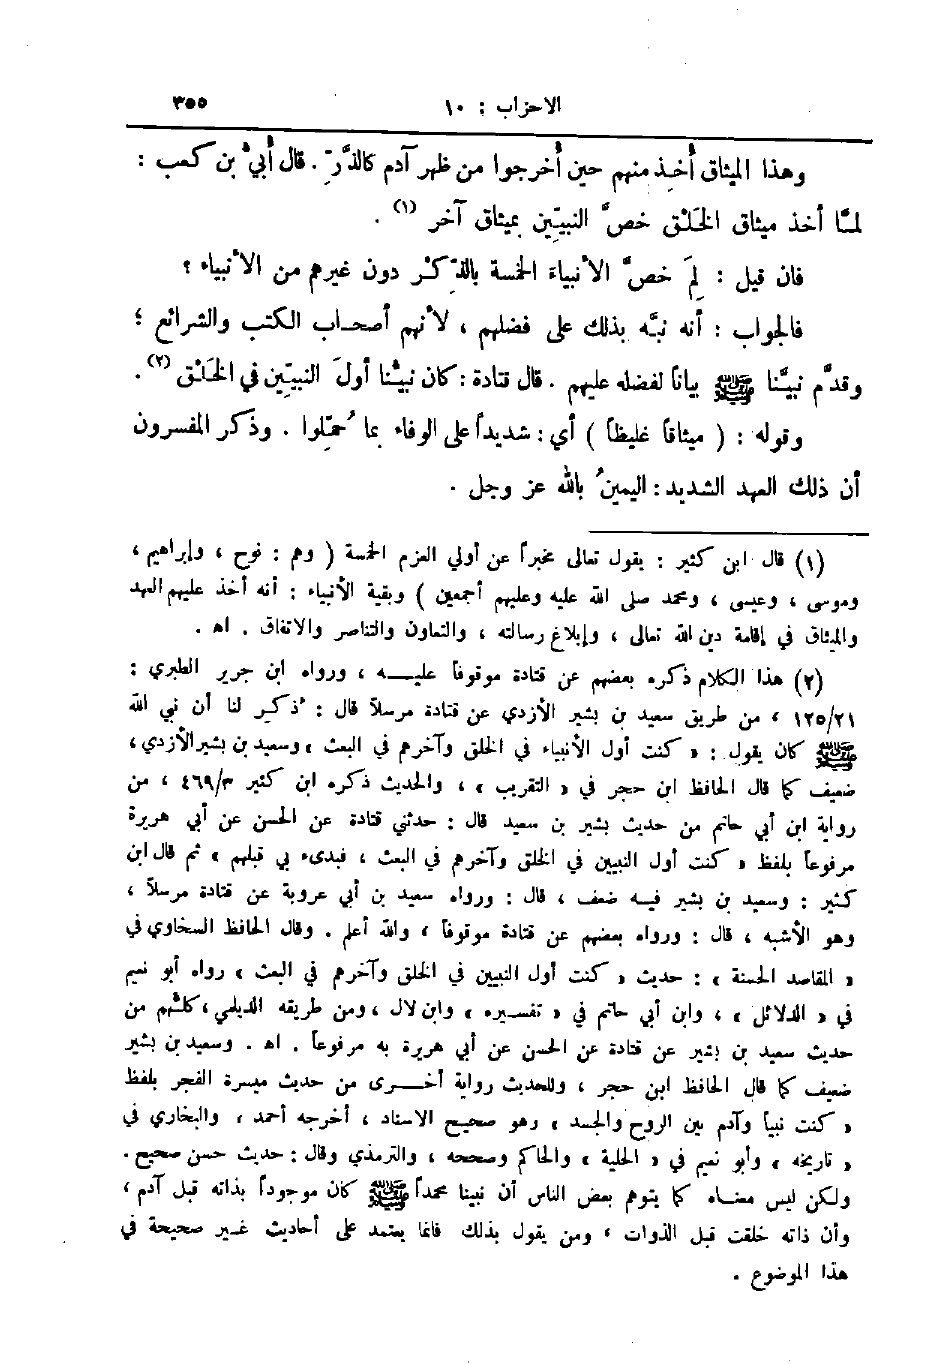 الاحزاب : ١٠ ٣٥٥
وهذا الميثاق أُخِذ منهم حين أُخرجوا من ظهر آدم كالذَّرِّ . قال أُبيّ بن كعب :
لمَّا أخذ ميثاق الخَلْق خصَّ النبيِّين بميثاق آخر (١) .
فان قيل : لِمَ خصَّ الأنبياءَ الخمسة بالذِّكْر دون غيرهم من الأنبياء ؟
فالجواب : أنه نبَّه بذلك على فضلهم ، لأنهم أصحاب الكتب والشرائع ؛
وقدَّم نبيَّنا ﷺ بياناً لفضله عليهم . قال قتادة : كان نبيُّنا أولَ النبيِّين في الخَلْق (٢) .
وقوله : ( ميثاقاً غليظاً ) أي : شديداً على الوفاء بما حُمِّلوا . وذكر المفسرون
أن ذلك العهد الشديد : اليمينُ بالله عز وجل .
(١) قال ابن كثير : يقول تعالى مخبراً عن أولي العزم الخمسة ( وهم : نوح ، وإبراهيم ،
وموسى ، وعيسى ، ومحمد صلى الله عليه وعليهم أجمعين ) وبقية الأنبياء : أنه أخذ عليهم العهد
والميثاق في إقامة دين الله تعالى ، وإبلاغ رسالته ، والتعاون والتناصر والاتفاق . اه .
(٢) هذا الكلام ذكره بعضهم عن قتادة موقوفاً عليه ، ورواه ابن جرير الطبري :
١٢٥/٢١ ، من طريق سعيد بن بشير الأزدي عن قتادة مرسلاً قال : ذُكر لنا أن نبي الله
ﷺ كان يقول : « كنت أول الأنبياء في الخلق وآخرهم في البعث » وسعيد بن بشير الأزدي ،
ضعيف كما قال الحافظ ابن حجر في « التقريب » ، والحديث ذكره ابن كثير ٤٦٩/٣ ، من
رواية ابن أبي حاتم من حديث بشير بن سعيد قال : حدثني قتادة عن الحسن عن أبي هريرة
مرفوعاً بلفظ « كنت أول النبيين في الخلق وآخرهم في البعث ، فبدىء بي قبلهم » ثم قال ابن
كثير : وسعيد بن بشير فيه ضعف ، قال : ورواه سعيد بن أبي عروبة عن قتادة مرسلاً ،
وهو الأشبه ، قال : ورواه بعضهم عن قتادة موقوفاً ، والله أعلم . وقال الحافظ السخاوي في
« المقاصد الحسنة » : حديث « كنت أول النبيين في الخلق وآخرهم في البعث » رواه أبو نعيم
في « الدلائل » ، وابن أبي حاتم في « تفسيره » وابن لال ، ومن طريقه الديلمي ، كلُّهم من
حديث سعيد بن بشير عن قتادة عن الحسن عن أبي هريرة به مرفوعاً . اه . وسعيد بن بشير
ضعيف كما قال الحافظ ابن حجر ، وللحديث رواية أخرى من حديث ميسرة الفجر بلفظ
« كنت نبياً وآدم بين الروح والجسد » وهو صحيح الاسناد ، أخرجه أحمد ، والبخاري في
« تاريخه » وأبو نعيم في « الحلية » والحاكم وصححه ، والترمذي وقال : حديث حسن صحيح .
ولكن ليس معناه كما يتوهم بعض الناس أن نبينا محمداً ﷺ كان موجوداً بذاته قبل آدم ،
وأن ذاته خلقت قبل الذوات ، ومن يقول بذلك فانما يعتمد على أحاديث غير صحيحة في
هذا الموضوع .